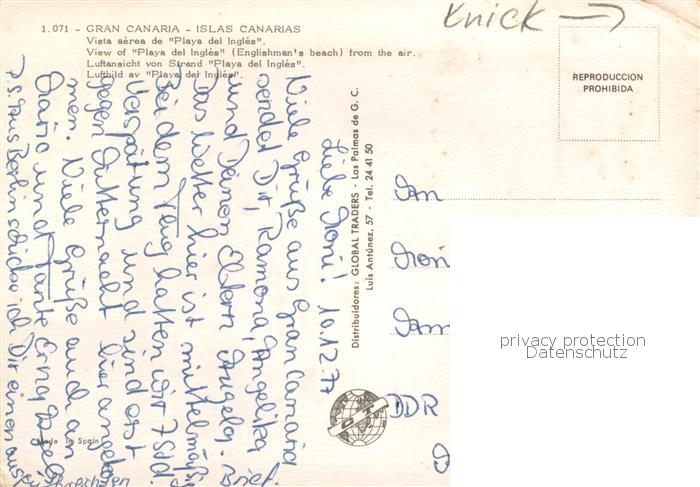 1.071 - GRAN CANARIA - ISLAS CANARIAS
Vista aérea de "Playa del Inglés".
View of "Playa del Inglés" (Englishman's beach) from the air.
Luftansicht von Strand "Playa del Inglés".
Luftbild av "Playa del Inglés".
Knick →
REPRODUCCION
PROHIBIDA
Liebe Roni! 10.12.77
Viele Grüße aus Gran Canaria
sendet Dir, Ramona, Angelika
und Deinen Eltern Angela.
Das Wetter hier ist mittelmäßig
Bei dem Flug hatten wir 7 Std.
Verspätung und sind erst
gegen Mitternacht hier angekom
men. Viele Grüße auch an
Mario und Tante Erna
P.S. Aus Berlin schicke ich Dir einen
Brief.
Distribuidores: GLOBAL TRADERS - Las Palmas de G. C.
Luis Antúnez, 57 - Tel. 24 41 50
An
DDR
GT
Made in Spain
privacy protection
Datenschutz